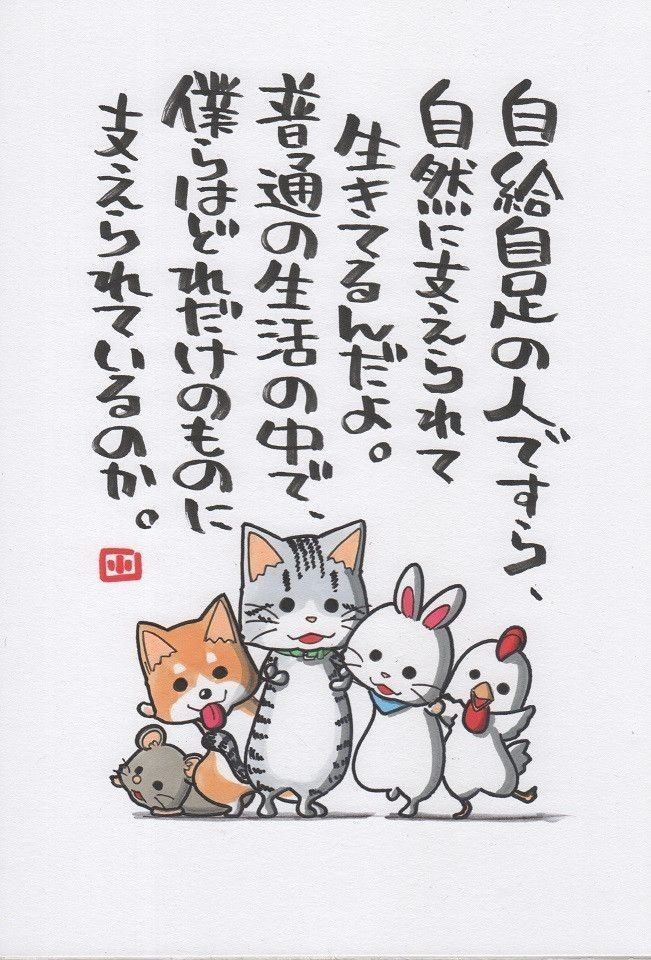 自給自足の人ですら、
自然に支えられて
生きてるんだよ。
普通の生活の中で、
僕らはどれだけのものに
支えられているのか。
小